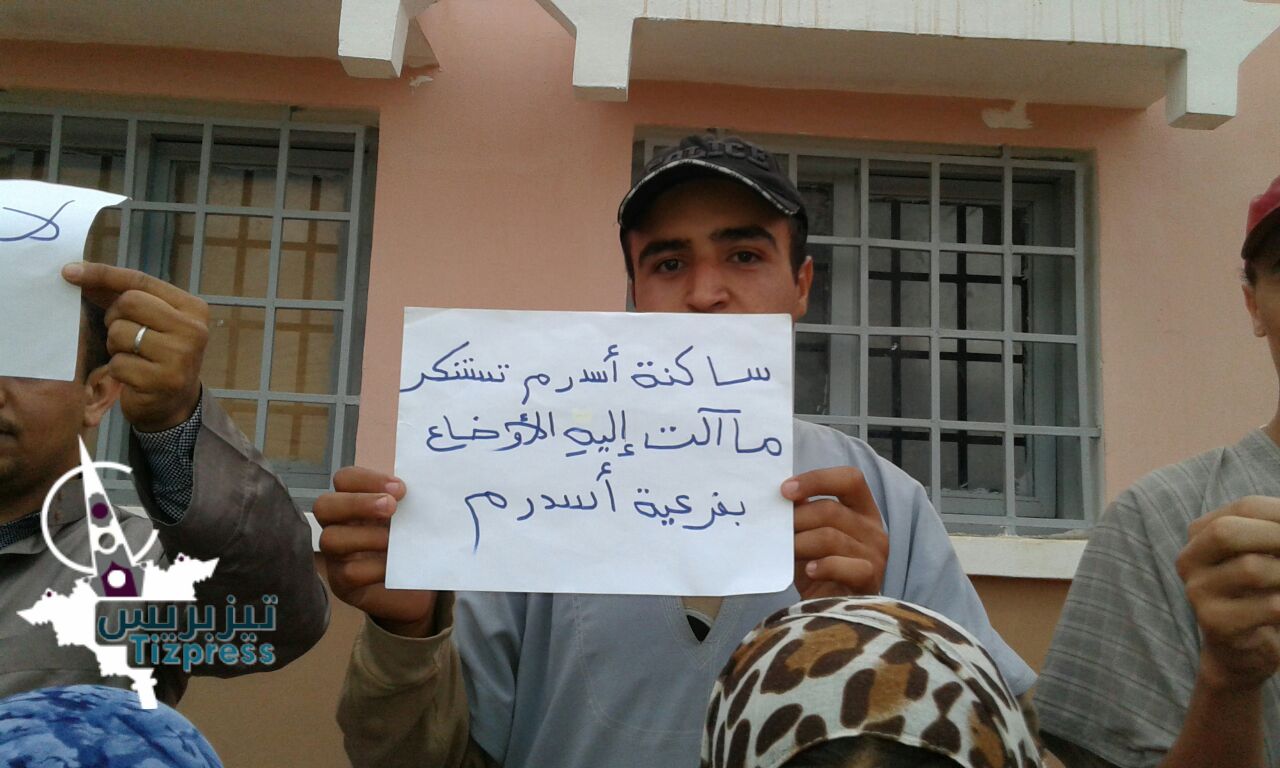 POLICE
لا
ساكنة أسدرم تستنكر
ما آلت إليهِ الأوضاع
بفرعية أسدرم
تيزبريس
Tizpress